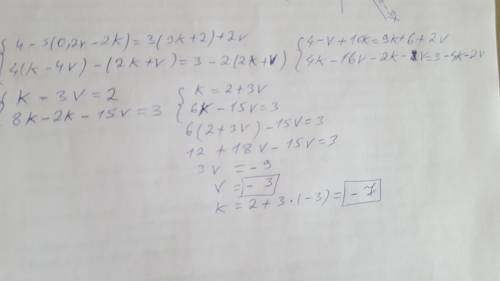 { 4 - 5(0,2v - 2k) = 3(3k + 2) + 2v
4(k - 4v) - (2k + v) = 3 - 2(2k + v)
{ 4 - v + 10k = 9k + 6 + 2v
4k - 16v - 2k - v = 3 - 4k - 2v
{ k - 3v = 2
8k - 2k - 15v = 3
{ k = 2 + 3v
6k - 15v = 3
6(2 + 3v) - 15v = 3
12 + 18v - 15v = 3
3v = -9
v = -3
k = 2 + 3·(-3) = -7